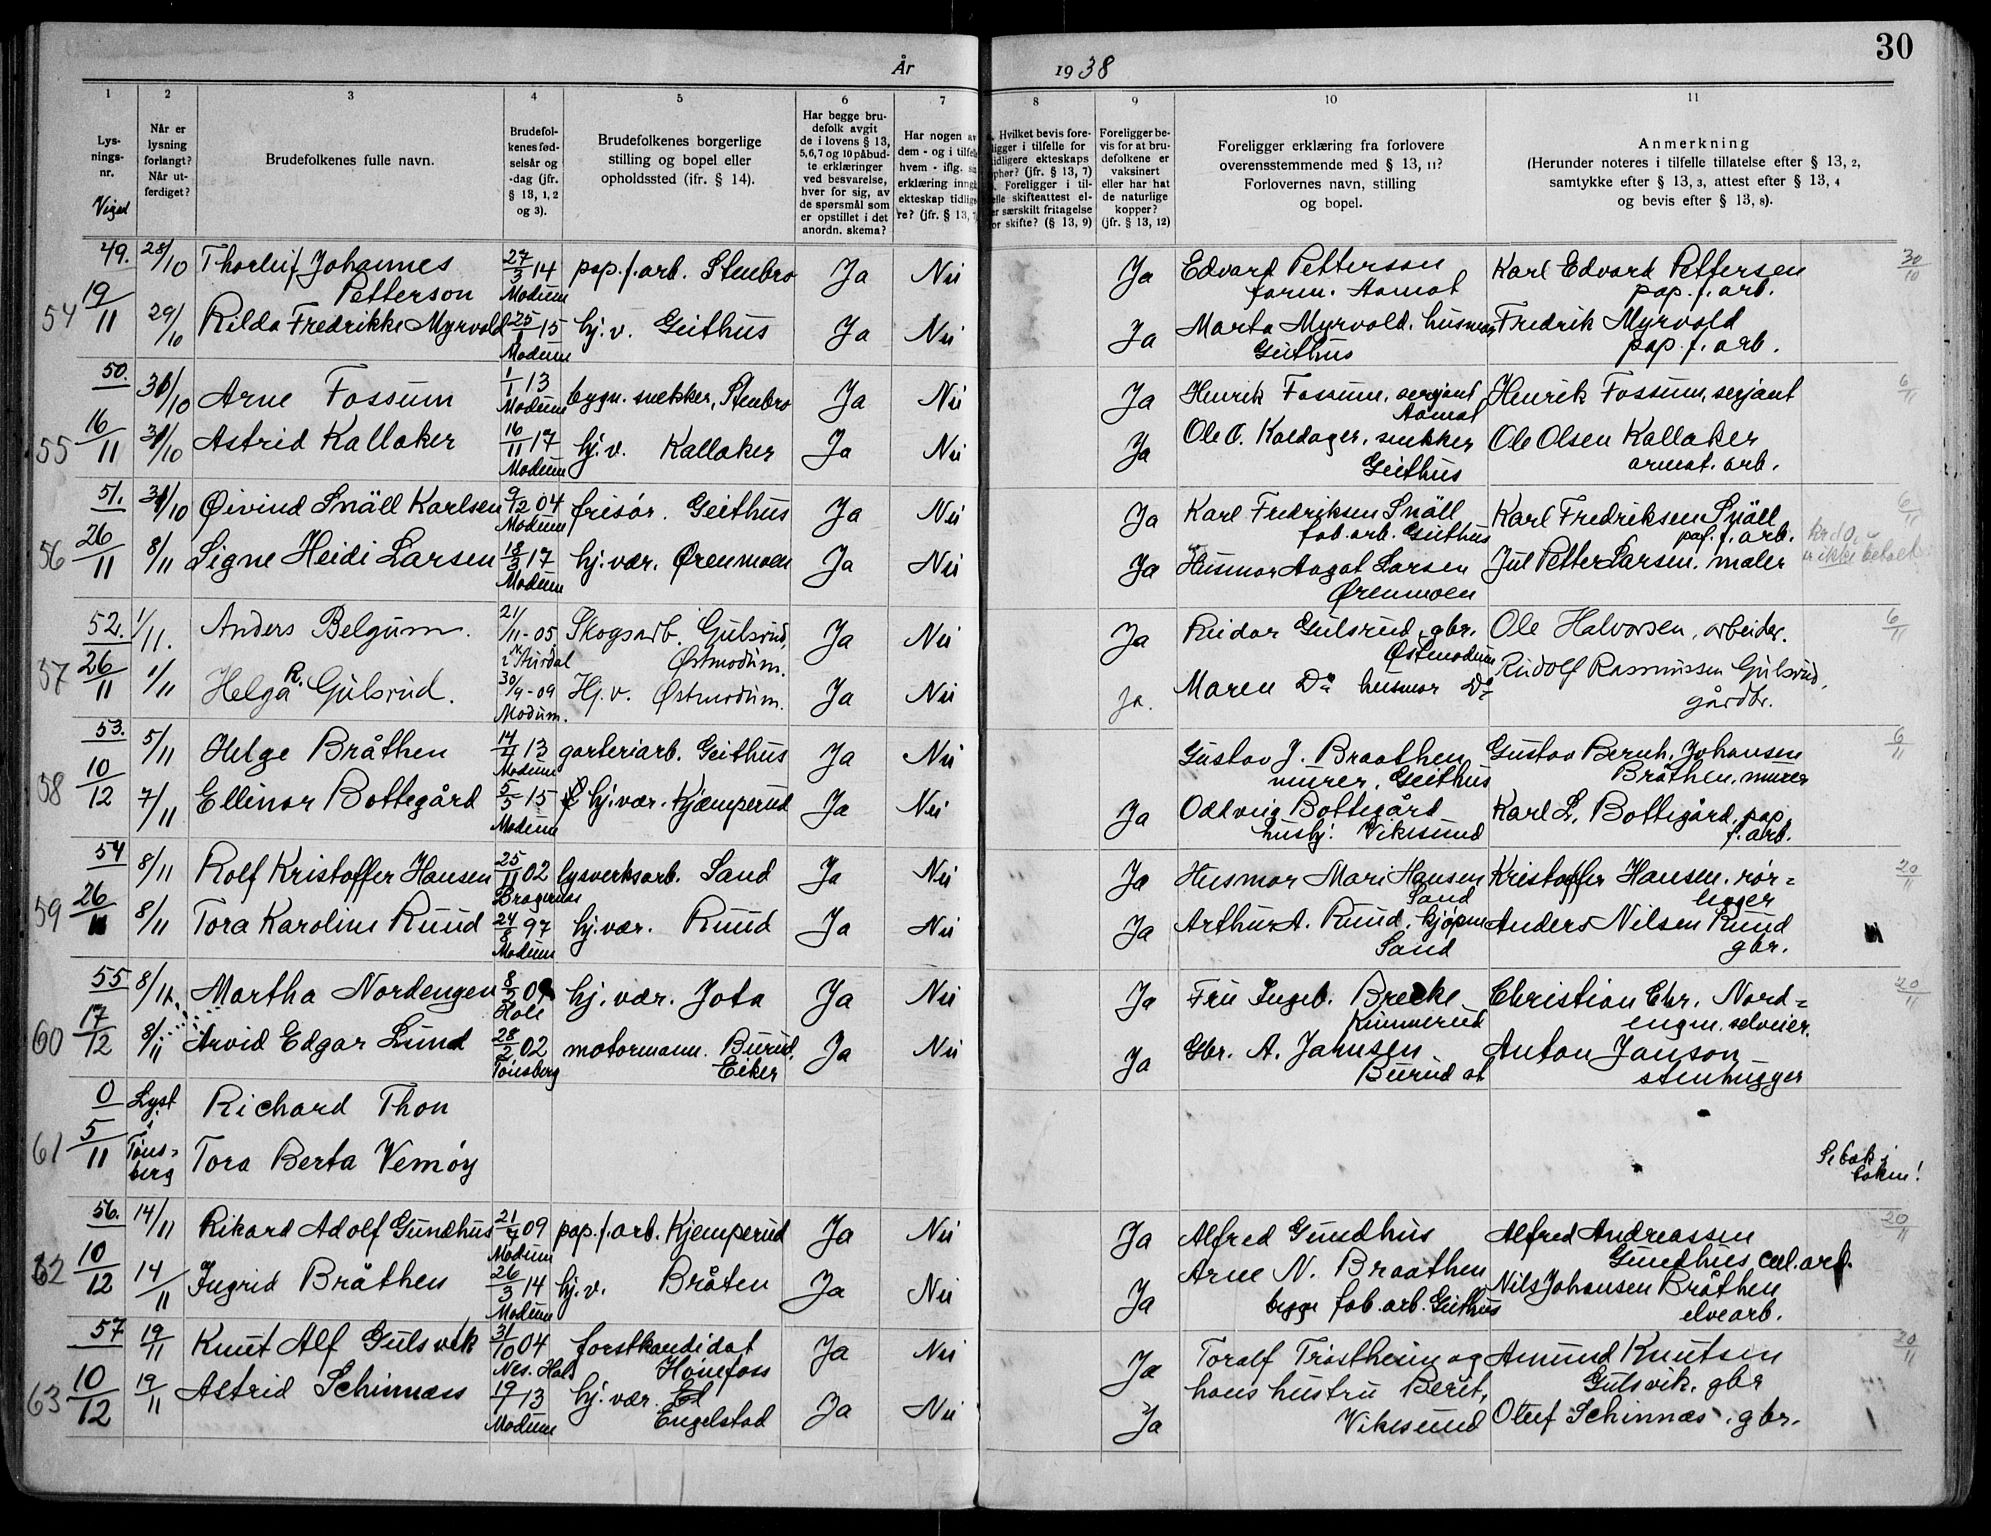 30
År 1938
1 2 3 4 5 6 7 8 9 10 11
Lysnings-nr. Viget
Når er lysning forlangt? Når utferdiget?
Brudefolkenes fulle navn.
Brudefolkenes fødselsår og -dag (jfr. § 13, 1, 2 og 3).
Brudefolkenes borgerlige stilling og bopel eller opholdssted (ifr. § 14).
Har begge brudefolk avgit de i lovens § 13, 5,6,7 og 10 påbudte erklæringer ved besvarelse, hver for sig, av de spørsmål som er opstillet i det anordn. skema?
Foreligger bevis for at brudefolkene er vaksinert eller har hat de naturlige kopper? (jfr. § 13, 12)
Foreligger erklæring fra forlovere overensstemmende med § 13, 11? Forlovernes navn, stilling og bopel.
Anmerkning
(Herunder noteres i tilfelle tillatelse efter § 13, 2, samtykke efter § 13, 3, attest efter § 13, 4 og bevis efter § 13, 8).
49. 28/10 Thorleif Johannes Petterson 27/3 14 Modum pap.f.arb. Stenbro Ja Nei Ja Edvard Petterson form. Aamot Karl Edvard Pettersen pap.f.arb. 30/10
54 19/11 29/10 Rilda Fredrikke Myrvold 25/1 15 Modum hj.v. Geithus Ja Nei Ja Marta Myrvold, husmor Geithus Fredrik Myrvold pap.f.arb.
50. 31/10 Arne Fossum 1/1 13 Modum bygn. snekker, Stenbro Ja Nei Ja Henrik Fossum, serjant Aamot Henrik Fossum, serjant 6/11
55 16/11 31/10 Astrid Kallaker 16/11 17 Modum hj.v. Kallaker Ja Nei Ja Ole O. Kaldager, snekker Geithus Ole Olsen Kallaker armat. arb.
51. 31/10 Øivind Snäll Karlsen 9/12 04 Modum frisør. Geithus Ja Nei Ja Karl Fredriksen Snäll fab.arb. Geithus Karl Fredriksen Snäll pap.f.arb. 6/11
56 26/11 8/11 Signe Heidi Larsen 18/3 17 Modum hj.vær. Ørenmoen Ja Nei Ja Husmor Aagot Larsen Ørenmoen Jul Petter Larsen. maler ikke betalt
52. 1/11. Anders Belgum. 21/11-05 Skogsarb. Gulsrud, Østmodum. Ja Nei Ja Reidar Gulsrud, gbr. Østmodum Ole Halvorsen, arbeider. 6/11
57 26/11 1/11 Helga R. Gulsrud. 30/9-09 Modum. Hj.v. Østmodum. Ja Nei Ja. Maren Do husmor Do Rudolf Rasmussen Gulsrud, gårdbr.
53. 5/11 Helge Bråthen 14/4 13 Modum garteriarb. Geithus Ja Nei Gustav J. Braathen murer, Geithus Gustav Bernh. Johansen Bråthen, murer 6/11
58 10/12 7/11 Ellinor Bottegård 5/5 15 Modum hj.vær. Kjemperud Ja Nei Ja Oddveig Bottegård hushj. Vikesund Karl L. Bottegård, pap.f.arb.
54 8/11 Rolf Kristoffer Hansen 25/11 02 Bragernes lysverksarb. Sand Ja Nei Ja Husmor Mari Hansen Sand Kristoffer Hansen. rør=legger 20/11
59 26/11 8/11 Tora Karoline Ruud 24/8 97 Modum hj.vær. Ruud Ja Nei Ja Arthur A. Ruud, kjøpm Sand Anders Nilsen Ruud gbr.
55 8/11. Martha Nordengen 8/2 09 Hole hj.vær. Jota Ja Nei Ja Fru Ingeb. Brecke Kimmerud Christian Chr. Nord=engen. selveier. 20/11
60 17/12 8/11 Arvid Edgar Lund 28/2 02 Tønsberg motormann. Burud, Eiker Ja Nei Ja Gbr. A. Jansen Burud st Anton Janson stenhugger
0 Lyst i Tøns=berg Richard Thon
61 5/11 Tora Berta Vemøy Se bak i boken!
56. 14/11 Rikard Adolf Gundhus 21/7 09 Modum pap.f.arb. Kjemperud Ja Nei Ja Alfred Gundhus Alfred Andreassen Gundhus, cel.arb. 20/11
62 10/12 14/11 Ingrid Bråthen 26/3 14 Modum hj.v. Bråten Ja Nei Ja Arne N. Braathen begge fab.arb. Geithus Nils Johansen Bråthen elvearb.
57 19/11 Knut Alf Gulsvik 31/10 04 Nes. Hall forstkandidat Hønefoss Ja Nei Ja Toralf Trøstheim og Amund Knutsen Gulsvik, gbr 20/11
63 10/12 19/11 Astrid Schinnæss 19/7 13 Modum hj.vær. Engelstad Ja Nei Ja hans hustru Berit, Vikesund Oluf Schinnæs, gbr.